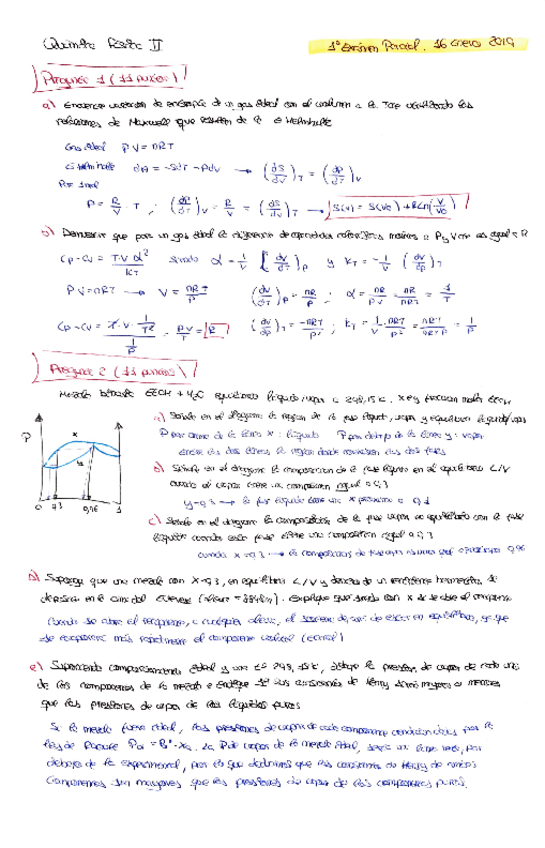 Química Física II 1º Exámen Parcial. 16 enero 2019
Pregunta 1 (11 puntos)
a) Encuentre variación de entropía de un gas ideal con el volumen a
relaciones de Maxwell que resultan de Helmholtz
Gas ideal PV = nRT
Helmholtz dA = -SdT - PdV → (dS/dV)T = (dP/dT)V
P = R/V · T ; (dP/dT)V = R/V = (dS/dV)T → S(V) = S(V0) + RLn(V/V0)
b) Demuestre que para un gas ideal la diferencia de capacidades caloríficas molares a P y V cte es igual a R
Cp-Cv = T·V·α²/KT siendo α = 1/V (dV/dT)P y KT = -1/V (dV/dP)T
PV = nRT → V = nRT/P (dV/dT)P = nR/P ; α = nR/PV = nR/nRT = 1/T
Cp-Cv = T·V·1/T² / 1/P = PV/T = R (dV/dP)T = -nRT/P² ; KT = 1/V · nRT/P² = nRT/nRTP = 1/P
Pregunta 2 (11 puntos)
Mezcla binaria + H2O equilibrio líquido/vapor a 298,15 K. x e y fracción molar
a) Señale en el diagrama la región de la fase líquida, vapor y equilibrio líquido/vapor
P por encima de la línea x: líquido P por debajo de la línea y: vapor
entre las dos líneas la región donde coexisten las dos fases
b) Señale en el diagrama la composición de la fase líquida en el equilibrio L/V
cuando el vapor tiene una composición igual a 0,3
y=0,3 → la fase líquida tiene una x próxima a 0,1
c) Señale en el diagrama la composición de la fase vapor en equilibrio con la fase
líquida cuando esta fase tiene una composición igual a 0,3
cuando x=0,3 → la composición de fase vapor
P x y 0 0,3 0,96 1
d) Suponga que una mezcla con x=0,3, en equilibrio L/V y dentro de un recipiente hermético, se
deposita en la cima del Everest. Explique qué sucede con x si se abre el recipiente
Cuando se abre el recipiente, a cualquier altura, el sistema deja de estar en equilibrio, ya que
se evaporará más rápidamente el componente volátil (etanol)
e) Suponiendo comportamiento ideal y una T = 298,15 K, dibuje la presión de vapor de cada uno
de los componentes de la mezcla e indique si sus constantes de Henry serían mayores o menores
que las presiones de vapor de los líquidos puros
Si la mezcla fuera ideal, las presiones de vapor de cada componente vendrían dadas por la
ley de Raoult. La P de vapor de la mezcla ideal, sería una línea recta, por
debajo de la experimental, por lo que deducimos que las constantes de Henry de ambos
componentes son mayores que las presiones de vapor de los componentes puros.